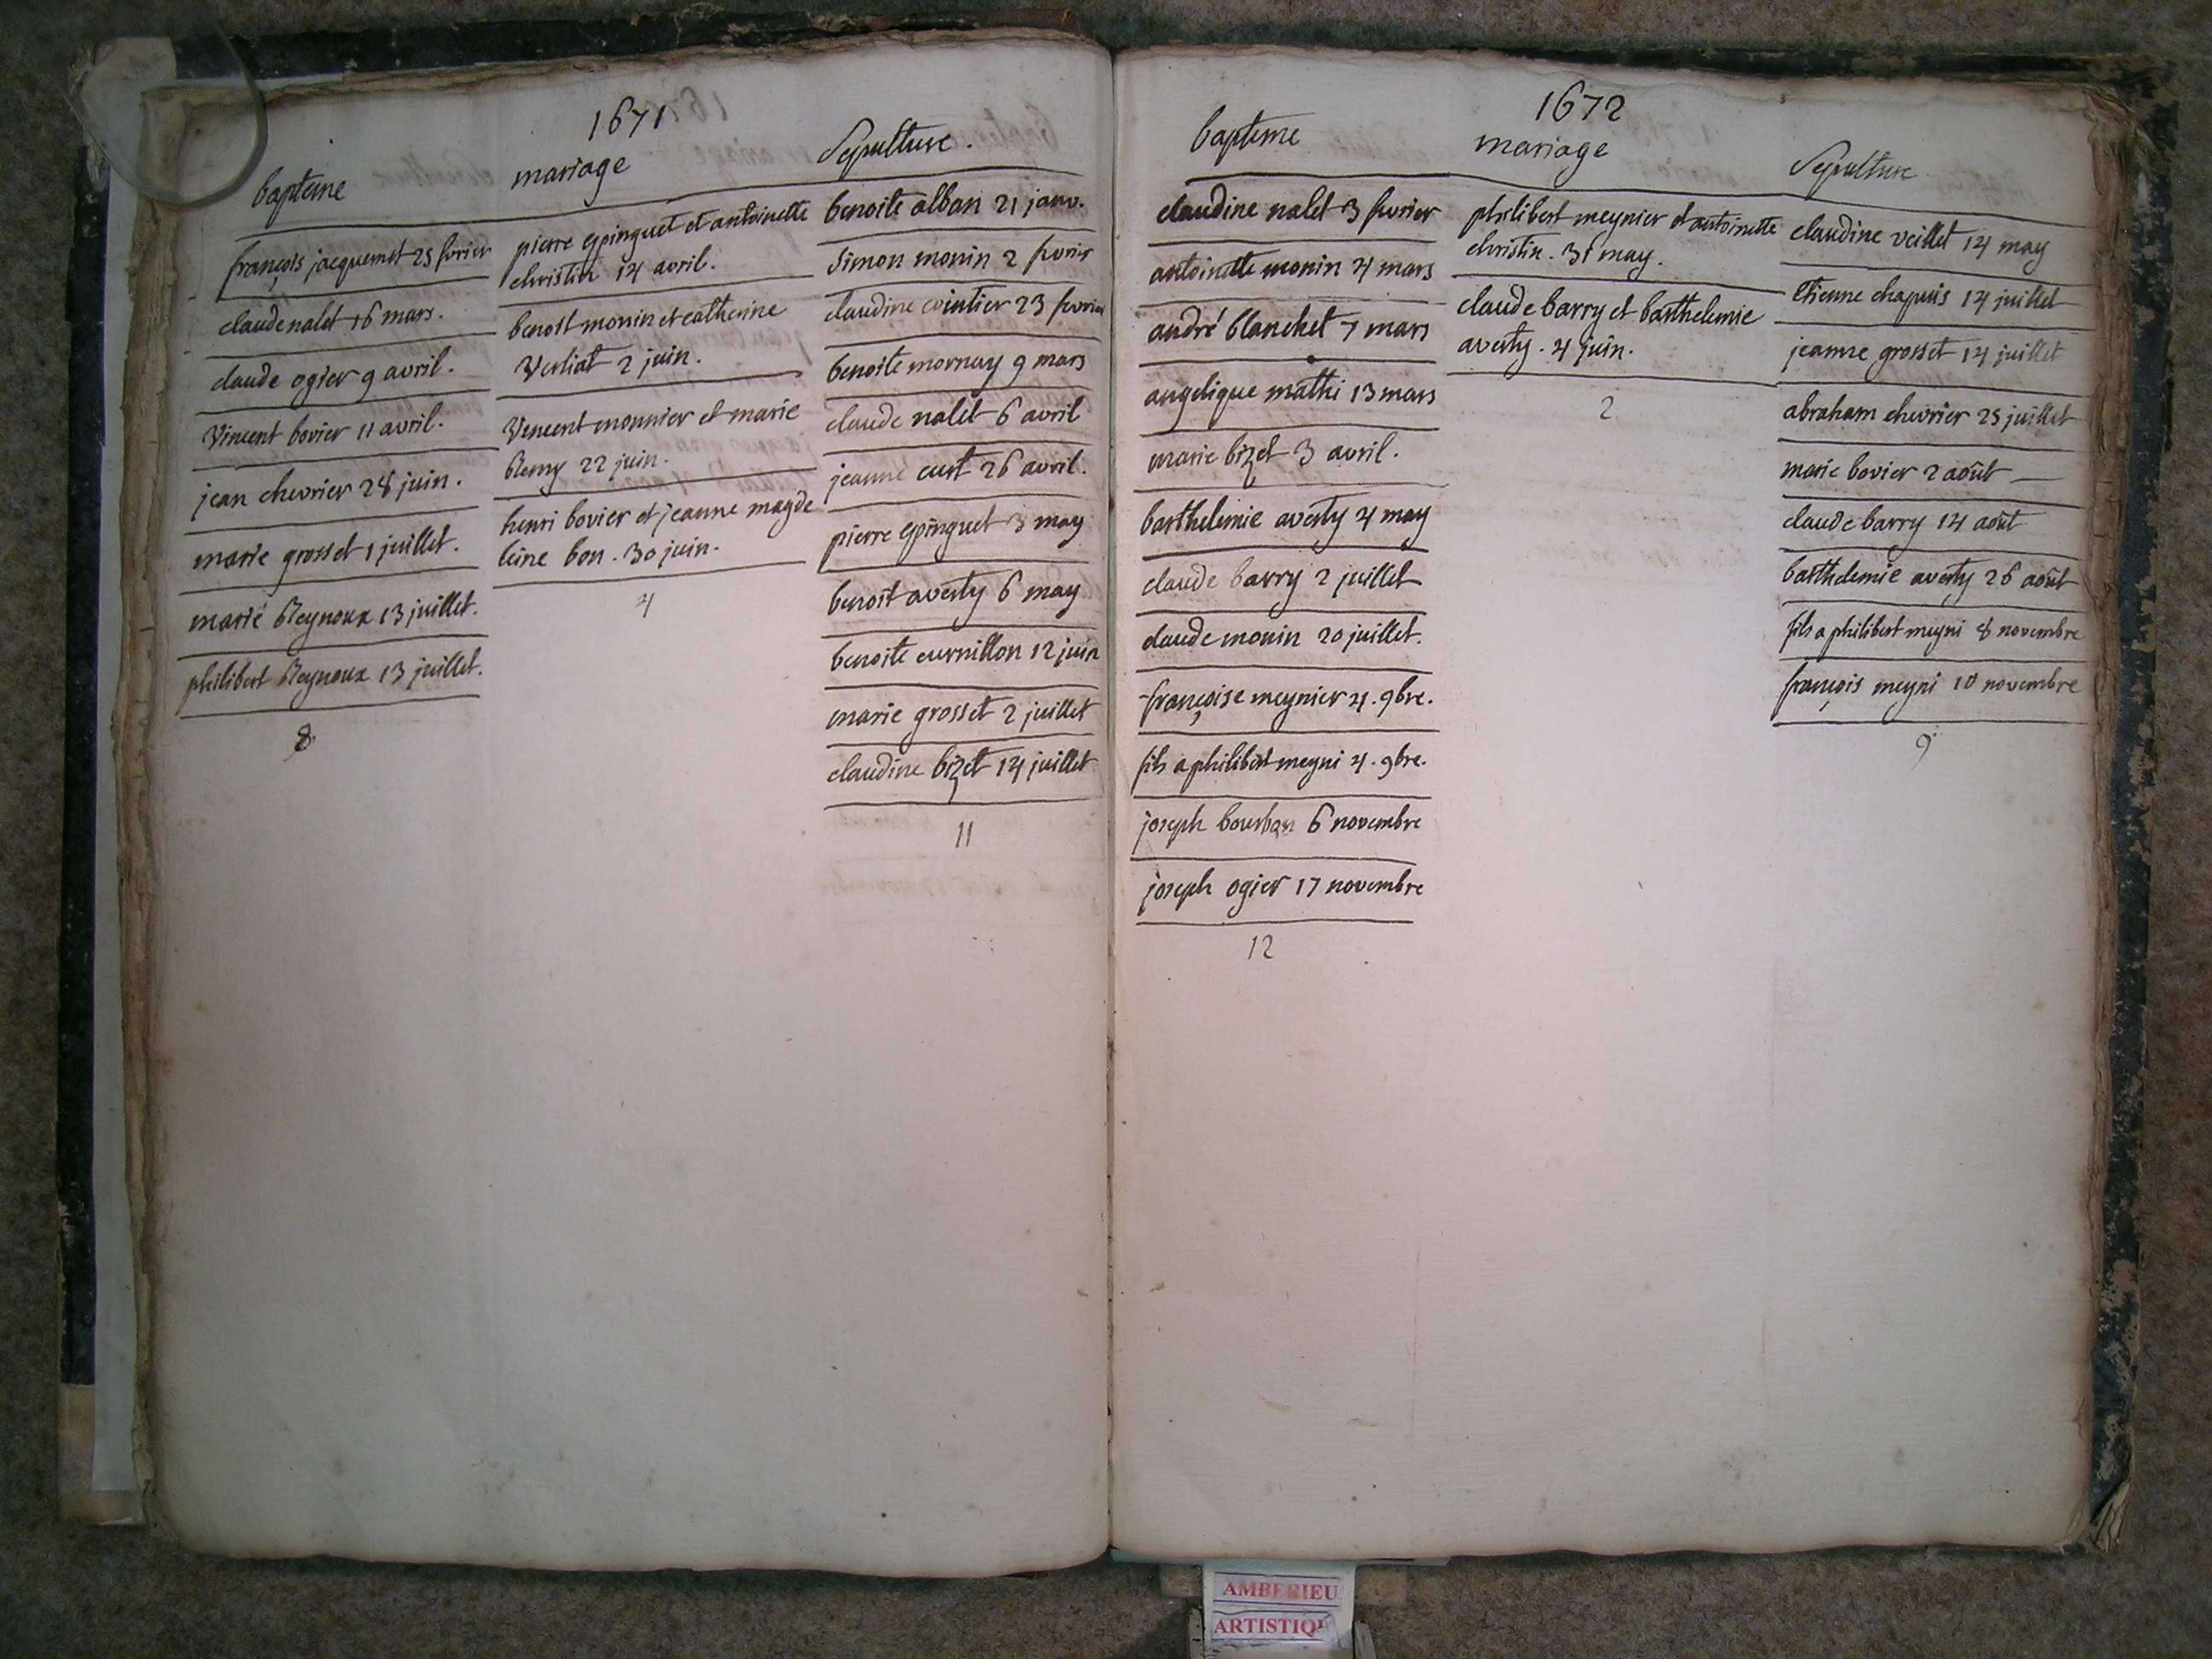 1671
bapteme
françois jacquemet 25 fevrier
claude nalet 16 mars.
claude ogier 9 avril.
Vincent bovier 11 avril.
jean chevrier 28 juin.
marie grosset 1 juillet.
marie Reynoux 13 juillet.
philibert Reynoux 13 juillet.
8
mariage
pierre epinguet et antoinette
christin 14 avril.
benoit monin et catherine
Verliat 2 juin.
Vencent monnier et marie
Remy 22 juin.
henri bovier et jeanne magde
leine bon. 30 juin.
4
Sepulture.
benoite alban 21 janv.
Simon monin 2 fevrier
claudine cointier 23 fevrier
benoite mornay 9 mars
claude nalet 6 avril
jeanne curt 26 avril.
pierre epinguet 3 may
benoit averty 6 may
benoite curnillon 12 juin
marie grosset 2 juillet
claudine bizet 14 juillet
11
1672
bapteme
claudine nalet 3 fevrier
antoinette monin 4 mars
andré blanchet 7 mars
angelique mathi 13 mars
marie bizet 3 avril.
barthelemie averty 4 may
claude barry 2 juillet
claude monin 20 juillet.
françoise meynier 4. 9bre.
fils a philibert meyni 4. 9bre.
joseph bourbon 6 novembre
joseph ogier 17 novembre
12
mariage
philibert meynier et antoinette
christin. 31 may.
claude barry et barthelemie
averty. 4 juin.
2
Sepulture
claudine veillet 14 may
Etienne chapuis 14 juillet
jeanne grosset 14 juillet
abraham chevrier 25 juillet
marie bovier 2 août —
claude barry 14 août
barthelemie averty 26 août
fils a philibert meyni 8 novembre
françois meyni 10 novembre
9
AMBERIEU
ARTISTIQU